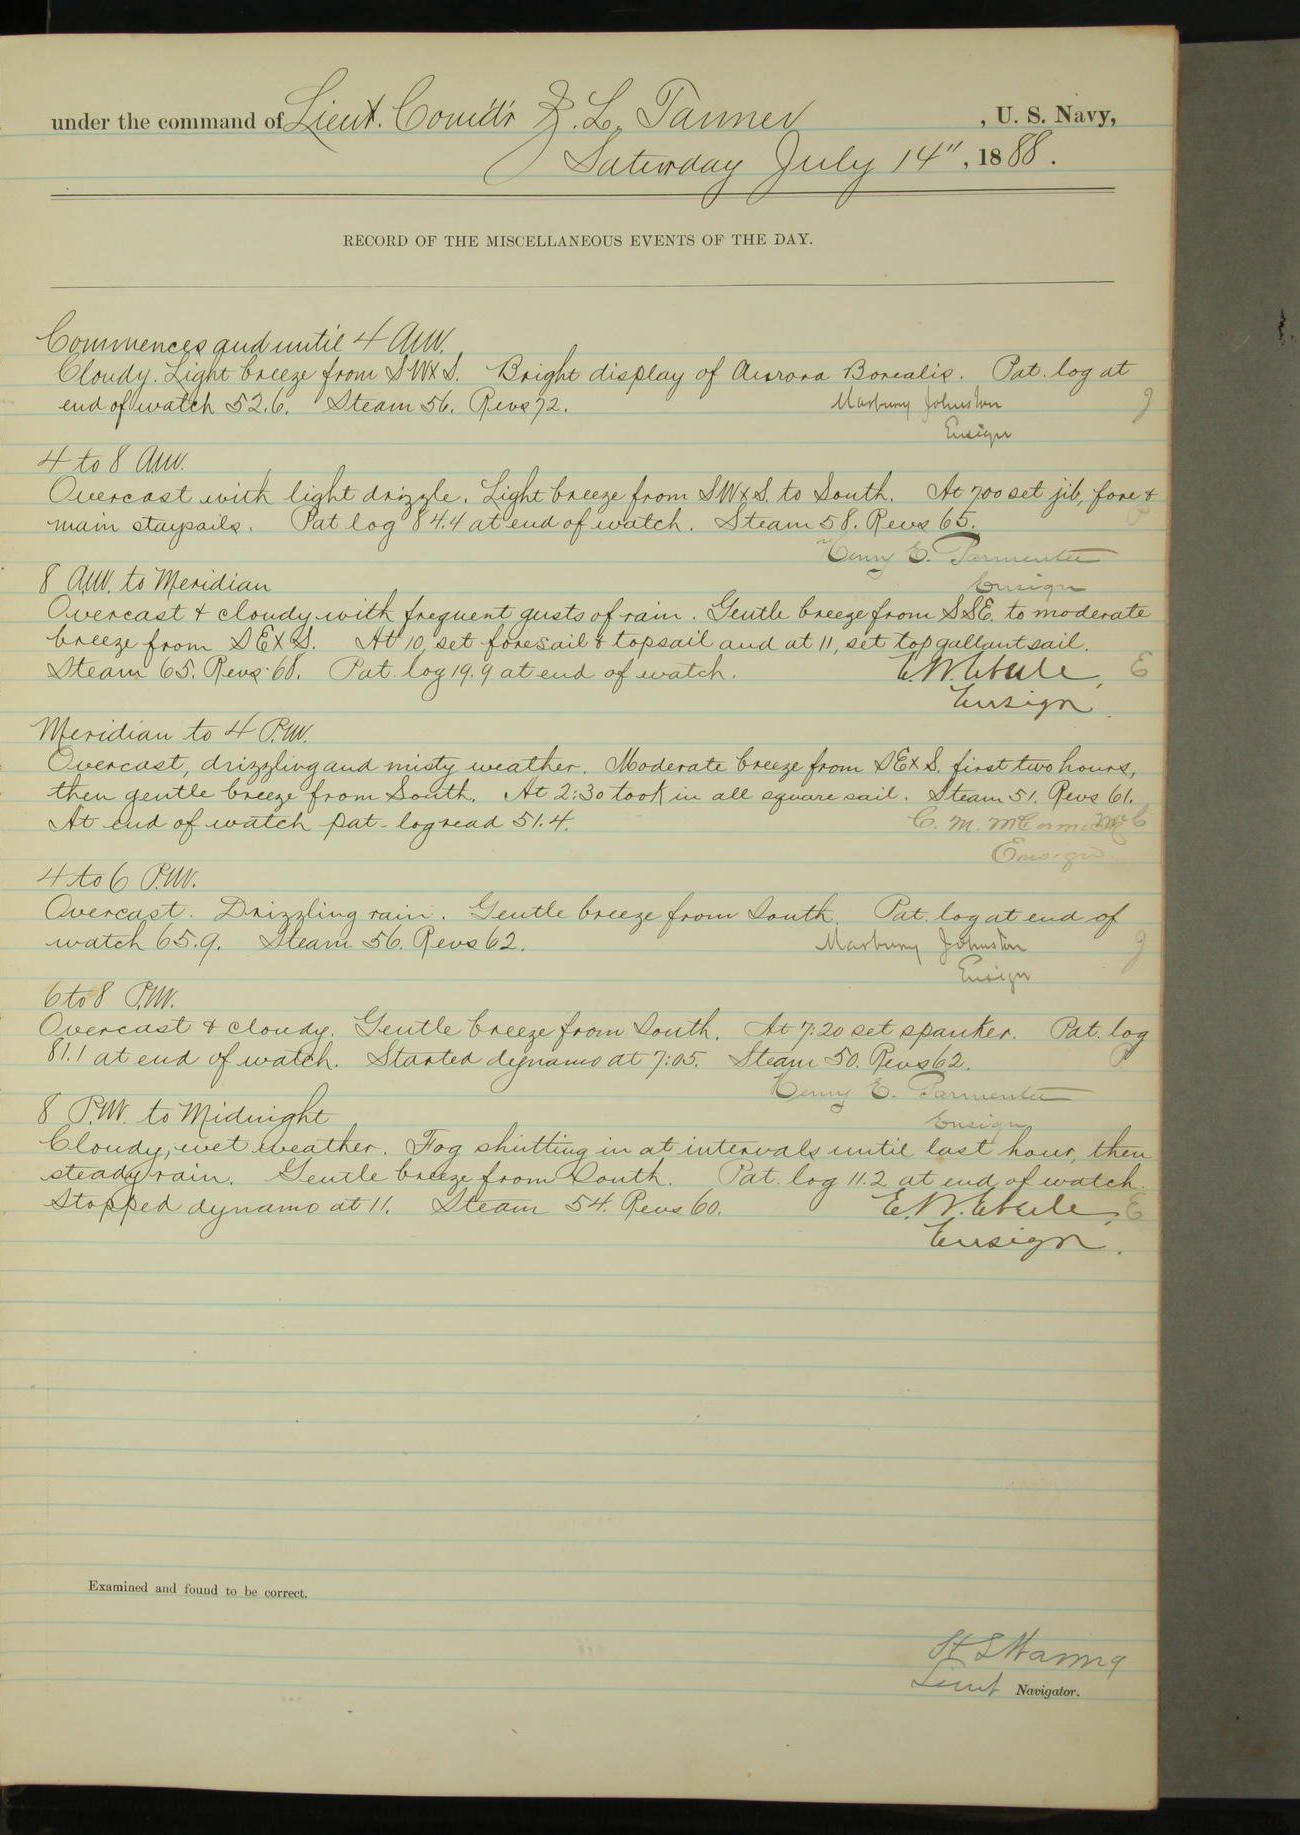 under the command of Lieut. Comd'r Z. L. Tanner, U. S. Navy,
Saturday July 14", 1888.
RECORD OF THE MISCELLANEOUS EVENTS OF THE DAY.
Commences and until 4 A.M.
Cloudy. Light breeze from SWxS. Bright display of Aurora Borealis. Pat. log at
end of watch 52.6. Steam 56. Revs 72. Marbury Johnston J
Ensign
4 to 8 A.M.
Overcast with light drizzle. Light breeze from SWxS. to South. At 7.00 set jib, fore &
main staysails. Pat log 84.4 at end of watch. Steam 58. Revs 65. P
Henry E. Parmenter
Ensign
8 A.M. to Meridian
Overcast & cloudy with frequent gusts of rain. Gentle breeze from SSE. to moderate
breeze from SExS. At 10, set foresail & topsail and at 11, set topgallantsail.
Steam 65. Revs 68. Pat. log 19.9 at end of watch. E. W. Eberle, E
Ensign.
Meridian to 4 P.M.
Overcast, drizzling and misty weather. Moderate breeze from SExS. first two hours,
then gentle breeze from South. At 2:30 took in all square sail. Steam 51. Revs 61.
At end of watch pat-log read 51.4. C. M. McCormick McC
Ensign
4 to 6 P.M.
Overcast. Drizzling rain. Gentle breeze from South. Pat. log at end of
watch 65.9. Steam 56. Revs 62. Marbury Johnston J
Ensign
6 to 8 P.M.
Overcast & cloudy. Gentle breeze from South. At 7:20 set spanker. Pat. log
81.1 at end of watch. Started dynamo at 7:05. Steam 50. Revs 62. P
Henry E. Parmenter
Ensign
8 P.M. to Midnight
Cloudy, wet weather. Fog shutting in at intervals until last hour, then
steady rain. Gentle breeze from South. Pat. log 11.2 at end of watch.
Stopped dynamo at 11. Steam 54. Revs 60. E. W. Eberle, E
Ensign.
Examined and found to be correct.
H S Waring
Lieut Navigator.